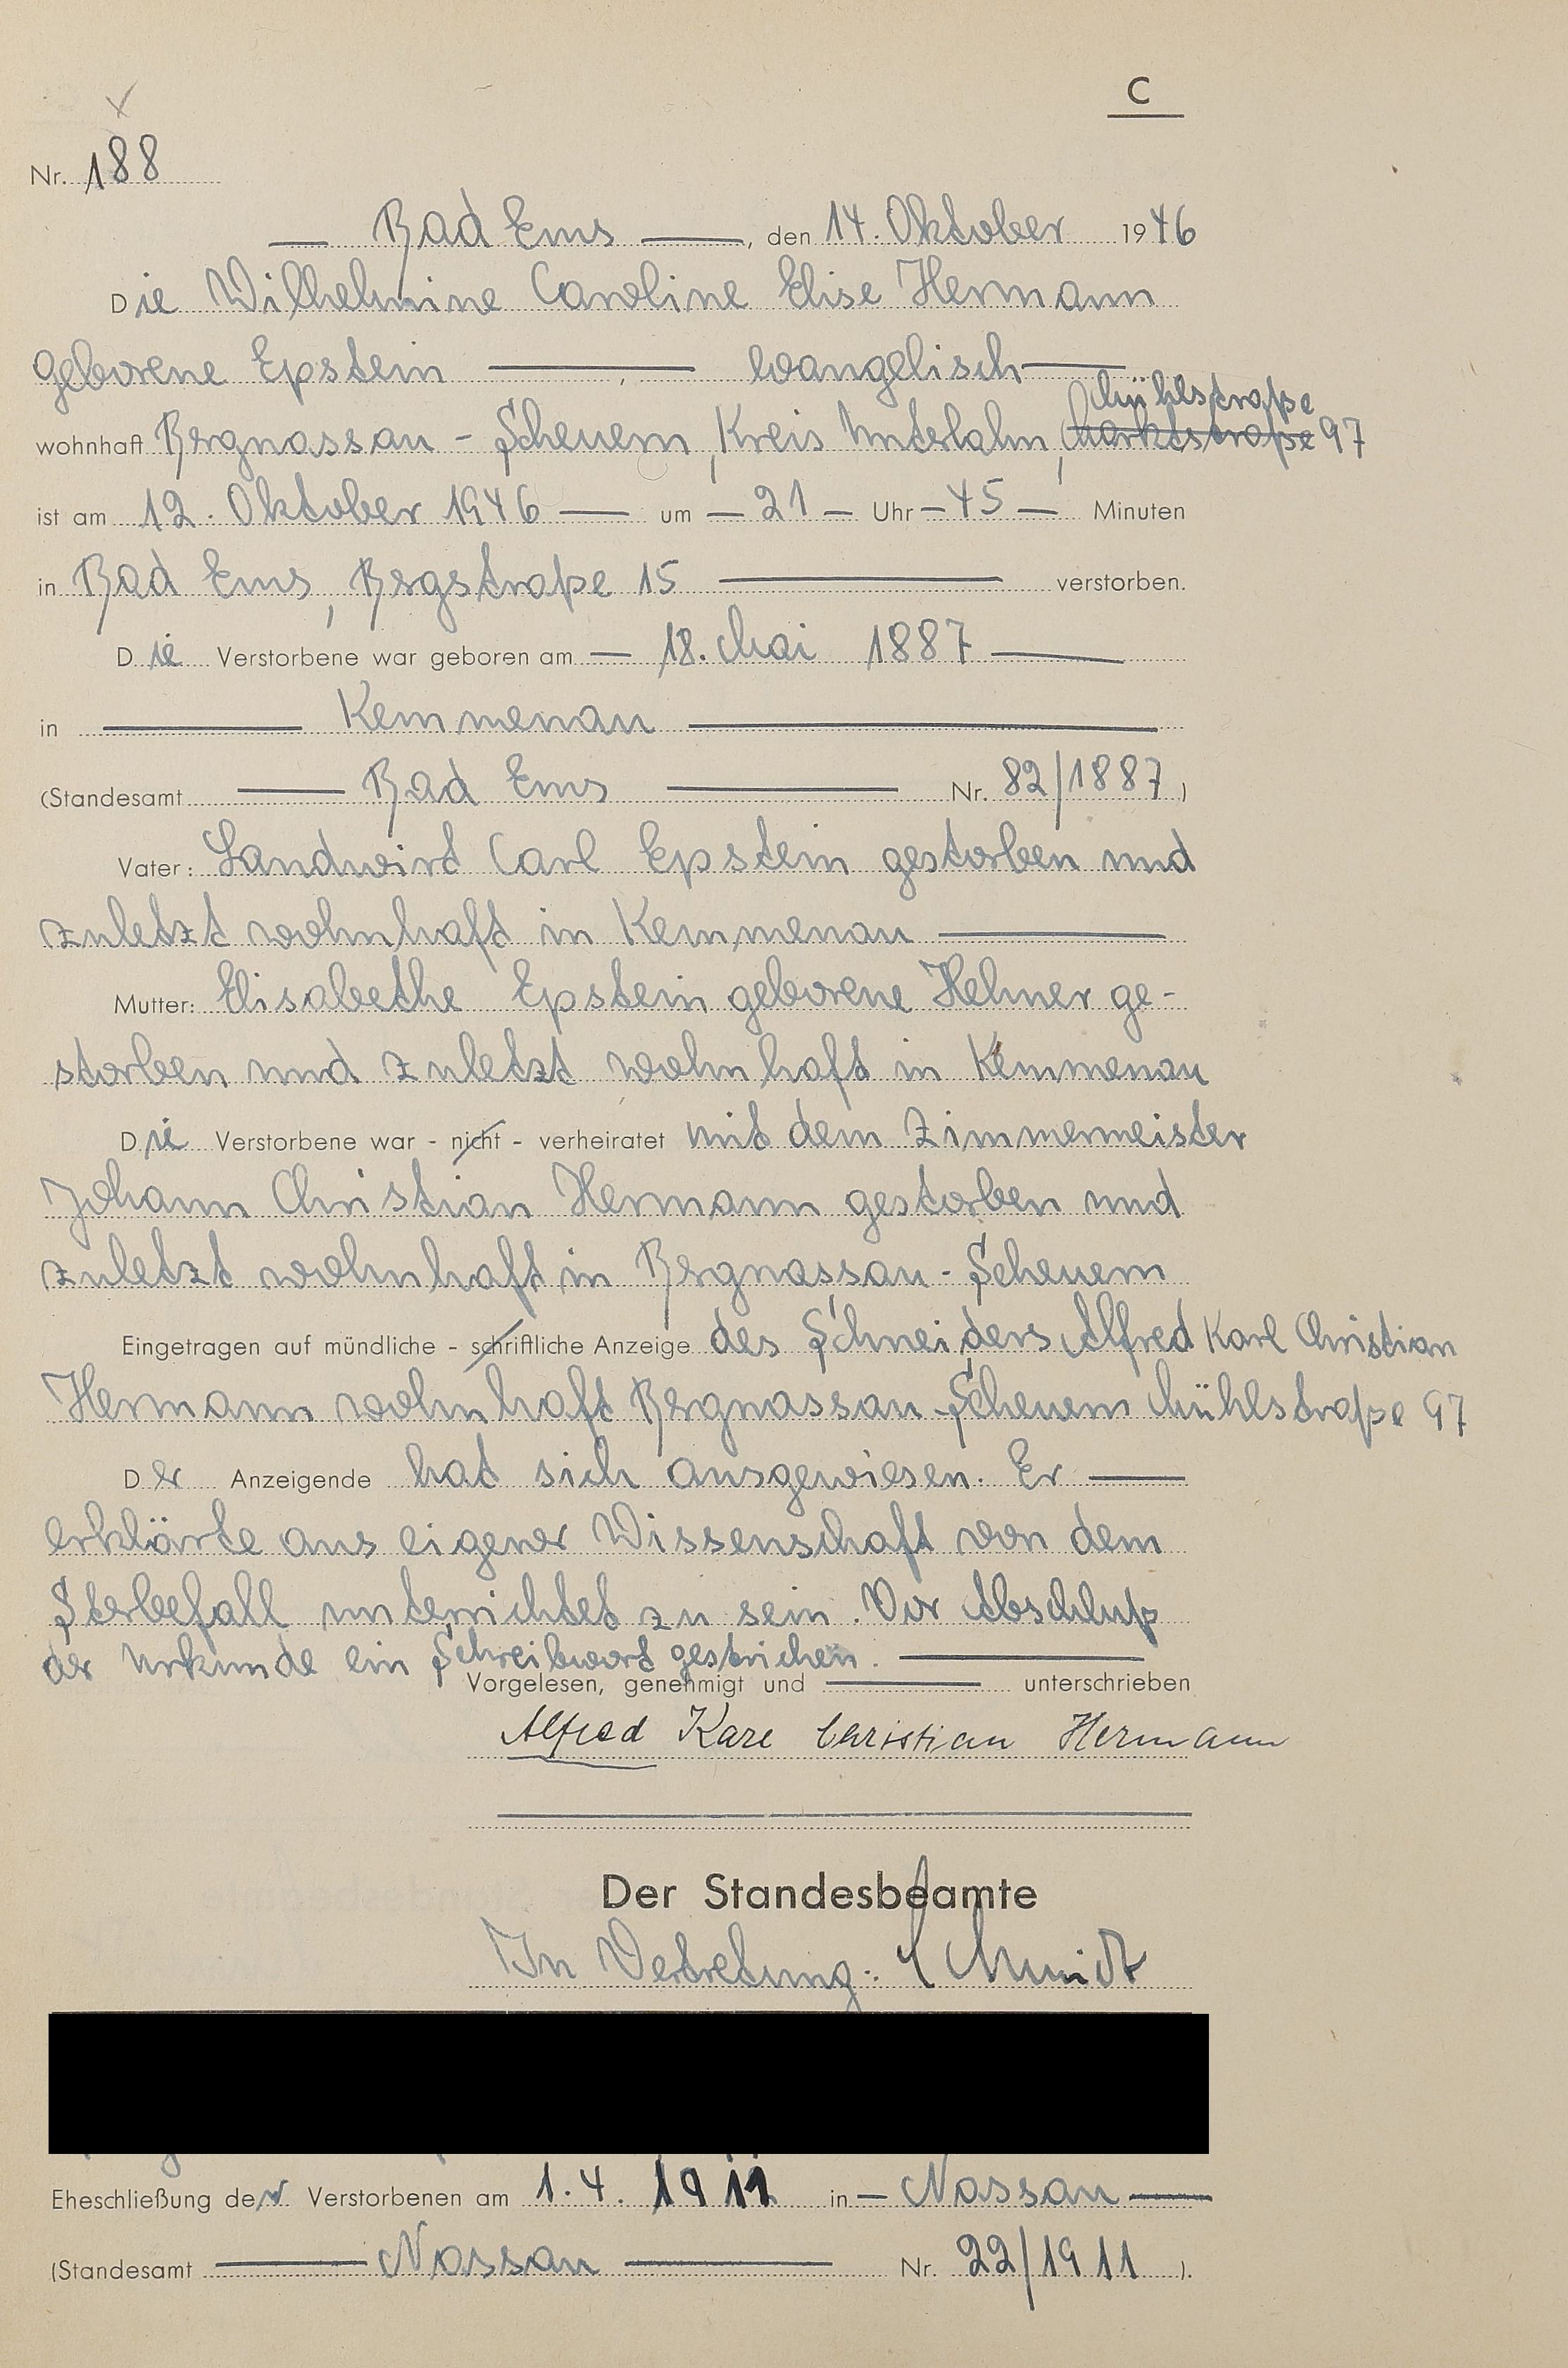 C
Nr. 188
Bad Ems, den 14. Oktober 1946
Die Wilhelmine Caroline Elise Hermann
geborene Epstein, evangelisch
Mühlstraße
wohnhaft Bergnassau - Scheuern, Kreis Unterlahn, Marktstraße 97
ist am 12. Oktober 1946 um 21 Uhr 45 Minuten
in Bad Ems, Bergstraße 15 verstorben.
Die Verstorbene war geboren am 18. Mai 1887
in Kemmenau
(Standesamt Bad Ems Nr. 82/1887)
Vater: Landwirt Carl Epstein gestorben und
zuletzt wohnhaft in Kemmenau
Mutter: Elisabethe Epstein geborene Hehner ge-
storben und zuletzt wohnhaft in Kemmenau
Die Verstorbene war - nicht - verheiratet mit dem Zimmermeister
Johann Christian Hermann gestorben und
zuletzt wohnhaft in Bergnassau - Scheuern
Eingetragen auf mündliche - schriftliche Anzeige des Schneiders Alfred Karl Christian
Hermann wohnhaft Bergnassau - Scheuern Mühlstraße 97
Der Anzeigende hat sich ausgewiesen. Er
erklärte aus eigener Wissenschaft von dem
Sterbefall unterrichtet zu sein. Vor Abschluß
der Urkunde ein Schreibwort gestrichen.
Vorgelesen, genehmigt und unterschrieben
Alfred Karl Christian Hermann
Der Standesbeamte
In Vertretung: Schmidt
Eheschließung der Verstorbenen am 1. 4. 1911 in Nassau
(Standesamt Nassau Nr. 22/1911).